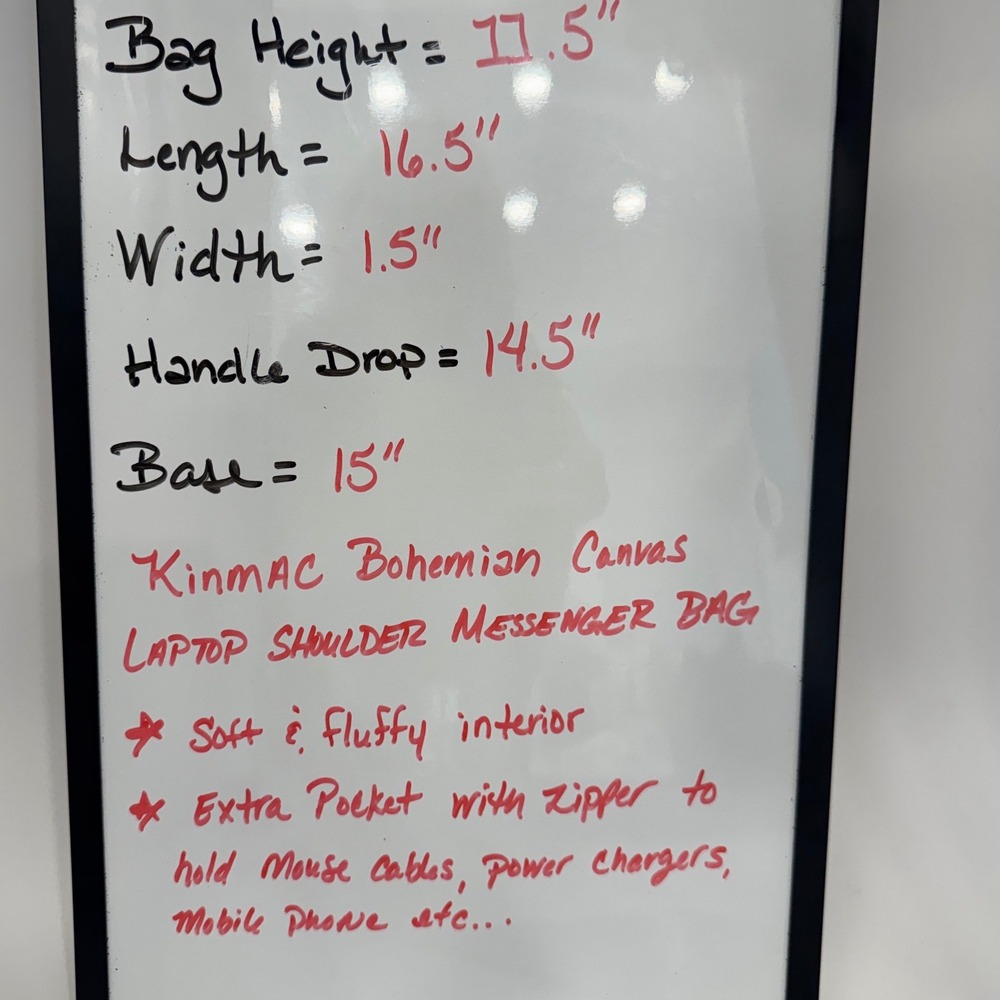 Bag Height = 11.5"
Length = 16.5"
Width = 1.5"
Handle Drop = 14.5"
Base = 15"
KinmAC Bohemian Canvas
LAPTOP SHOULDER MESSENGER BAG
* Soft & fluffy interior
* Extra Pocket with zipper to
hold Mouse cables, power chargers,
Mobile Phone etc...